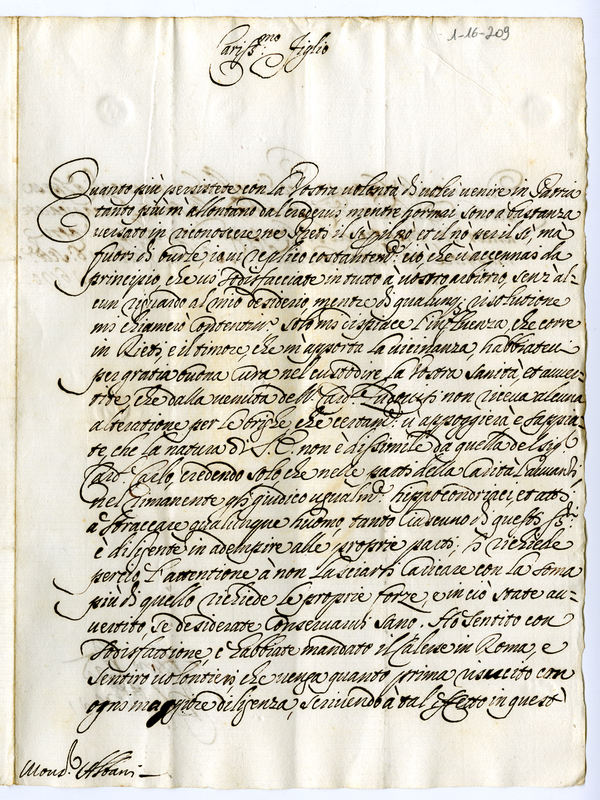 1-16-209
Cariss.mo Figlio
Quanto più persistete con la Vostra volontà di voler venire in Patria
tanto più m'allontano dal credervi mentre hormai sono a bastanza
versato in riconoscere ne Preti il se per no et il no per il si, ma
fuori di burle, qui replico costantem.te ciò che v'accennai da
principio, che vi sodisfacciate in tutto à vostro arbitrio, senz'al=
cun riguardo al mio desiderio mentre di qualunq; risolutione
mi chiamerò contentiss.o Solo mi dispiace l'influenza, che corre
in Rieti, e il timore, che m'apporta la vicinanza, habbiatevi
per gratia buona cura nel custodire la Vostra Sanità, et auver=
tite, che dalla venuta dell' Card.e non riceva alcuna
alteratione per le brighe che certam.te v'appoggierà e sappia=
te, che la natura di S. E. non è dissimile da quella del Sig.
Card. Carlo, credendo solo che nelle parti della Carità l'avanzi,
nel rimanente gli giudico ugualm.te hippocondriaci, et atti
à straccare qualunque huomo, tanto ciascuno di questi
è diligente in adempire alle proprie parti, si richiede
perciò l'attentione à non lasciarsi caricare con la soma
più di quello richiede le proprie forze, e in ciò state au=
vertito, se desiderate conservarvi sano. Ho sentito con
sodisfattione, e habbiate mandato il Calesse in Roma, e
sentirò volontieri, che venga quanto prima con
ogni maggiore diligenza, servendo à tal effetto in quest'
Albani